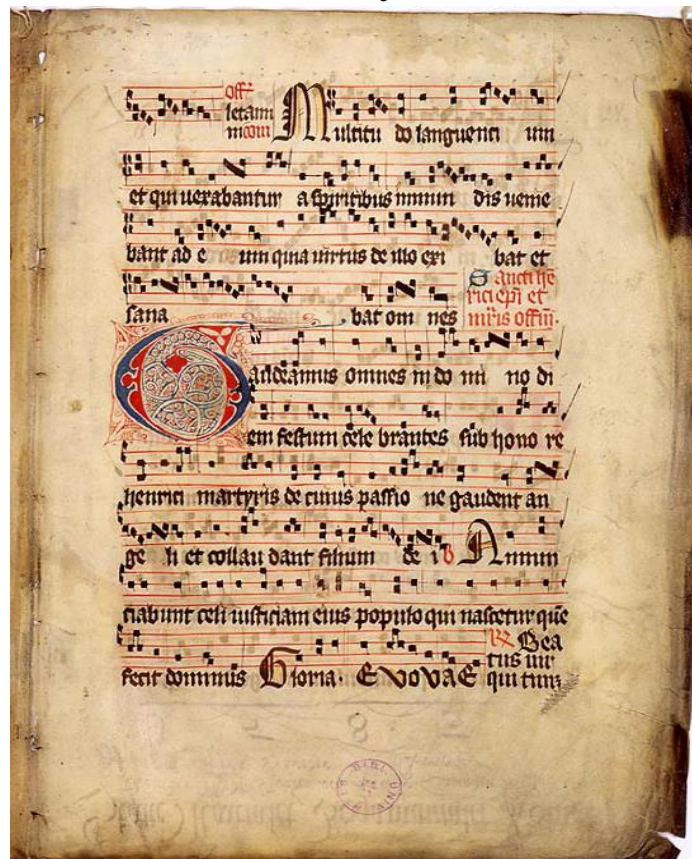 off
letam Multitu do languenti um
m com
et qui uexabantur a spiritibus inmun dis uenie
bant ad e um quia uirtus de illo exi bat et
sana bat om nes
Sancti he
rici epi et
mris offm.
Gaudeamus omnes in do mi no di
em festum cele brantes sub hono re
henrici martyris de cuius passio ne gaudent an
ge li et collau dant filium de i Annun
ciabunt celi iusticiam eius populo qui nascetur que
fecit dominus Gloria. EVOVAE
Bea
tus uir
qui tim
BIBL UNIV